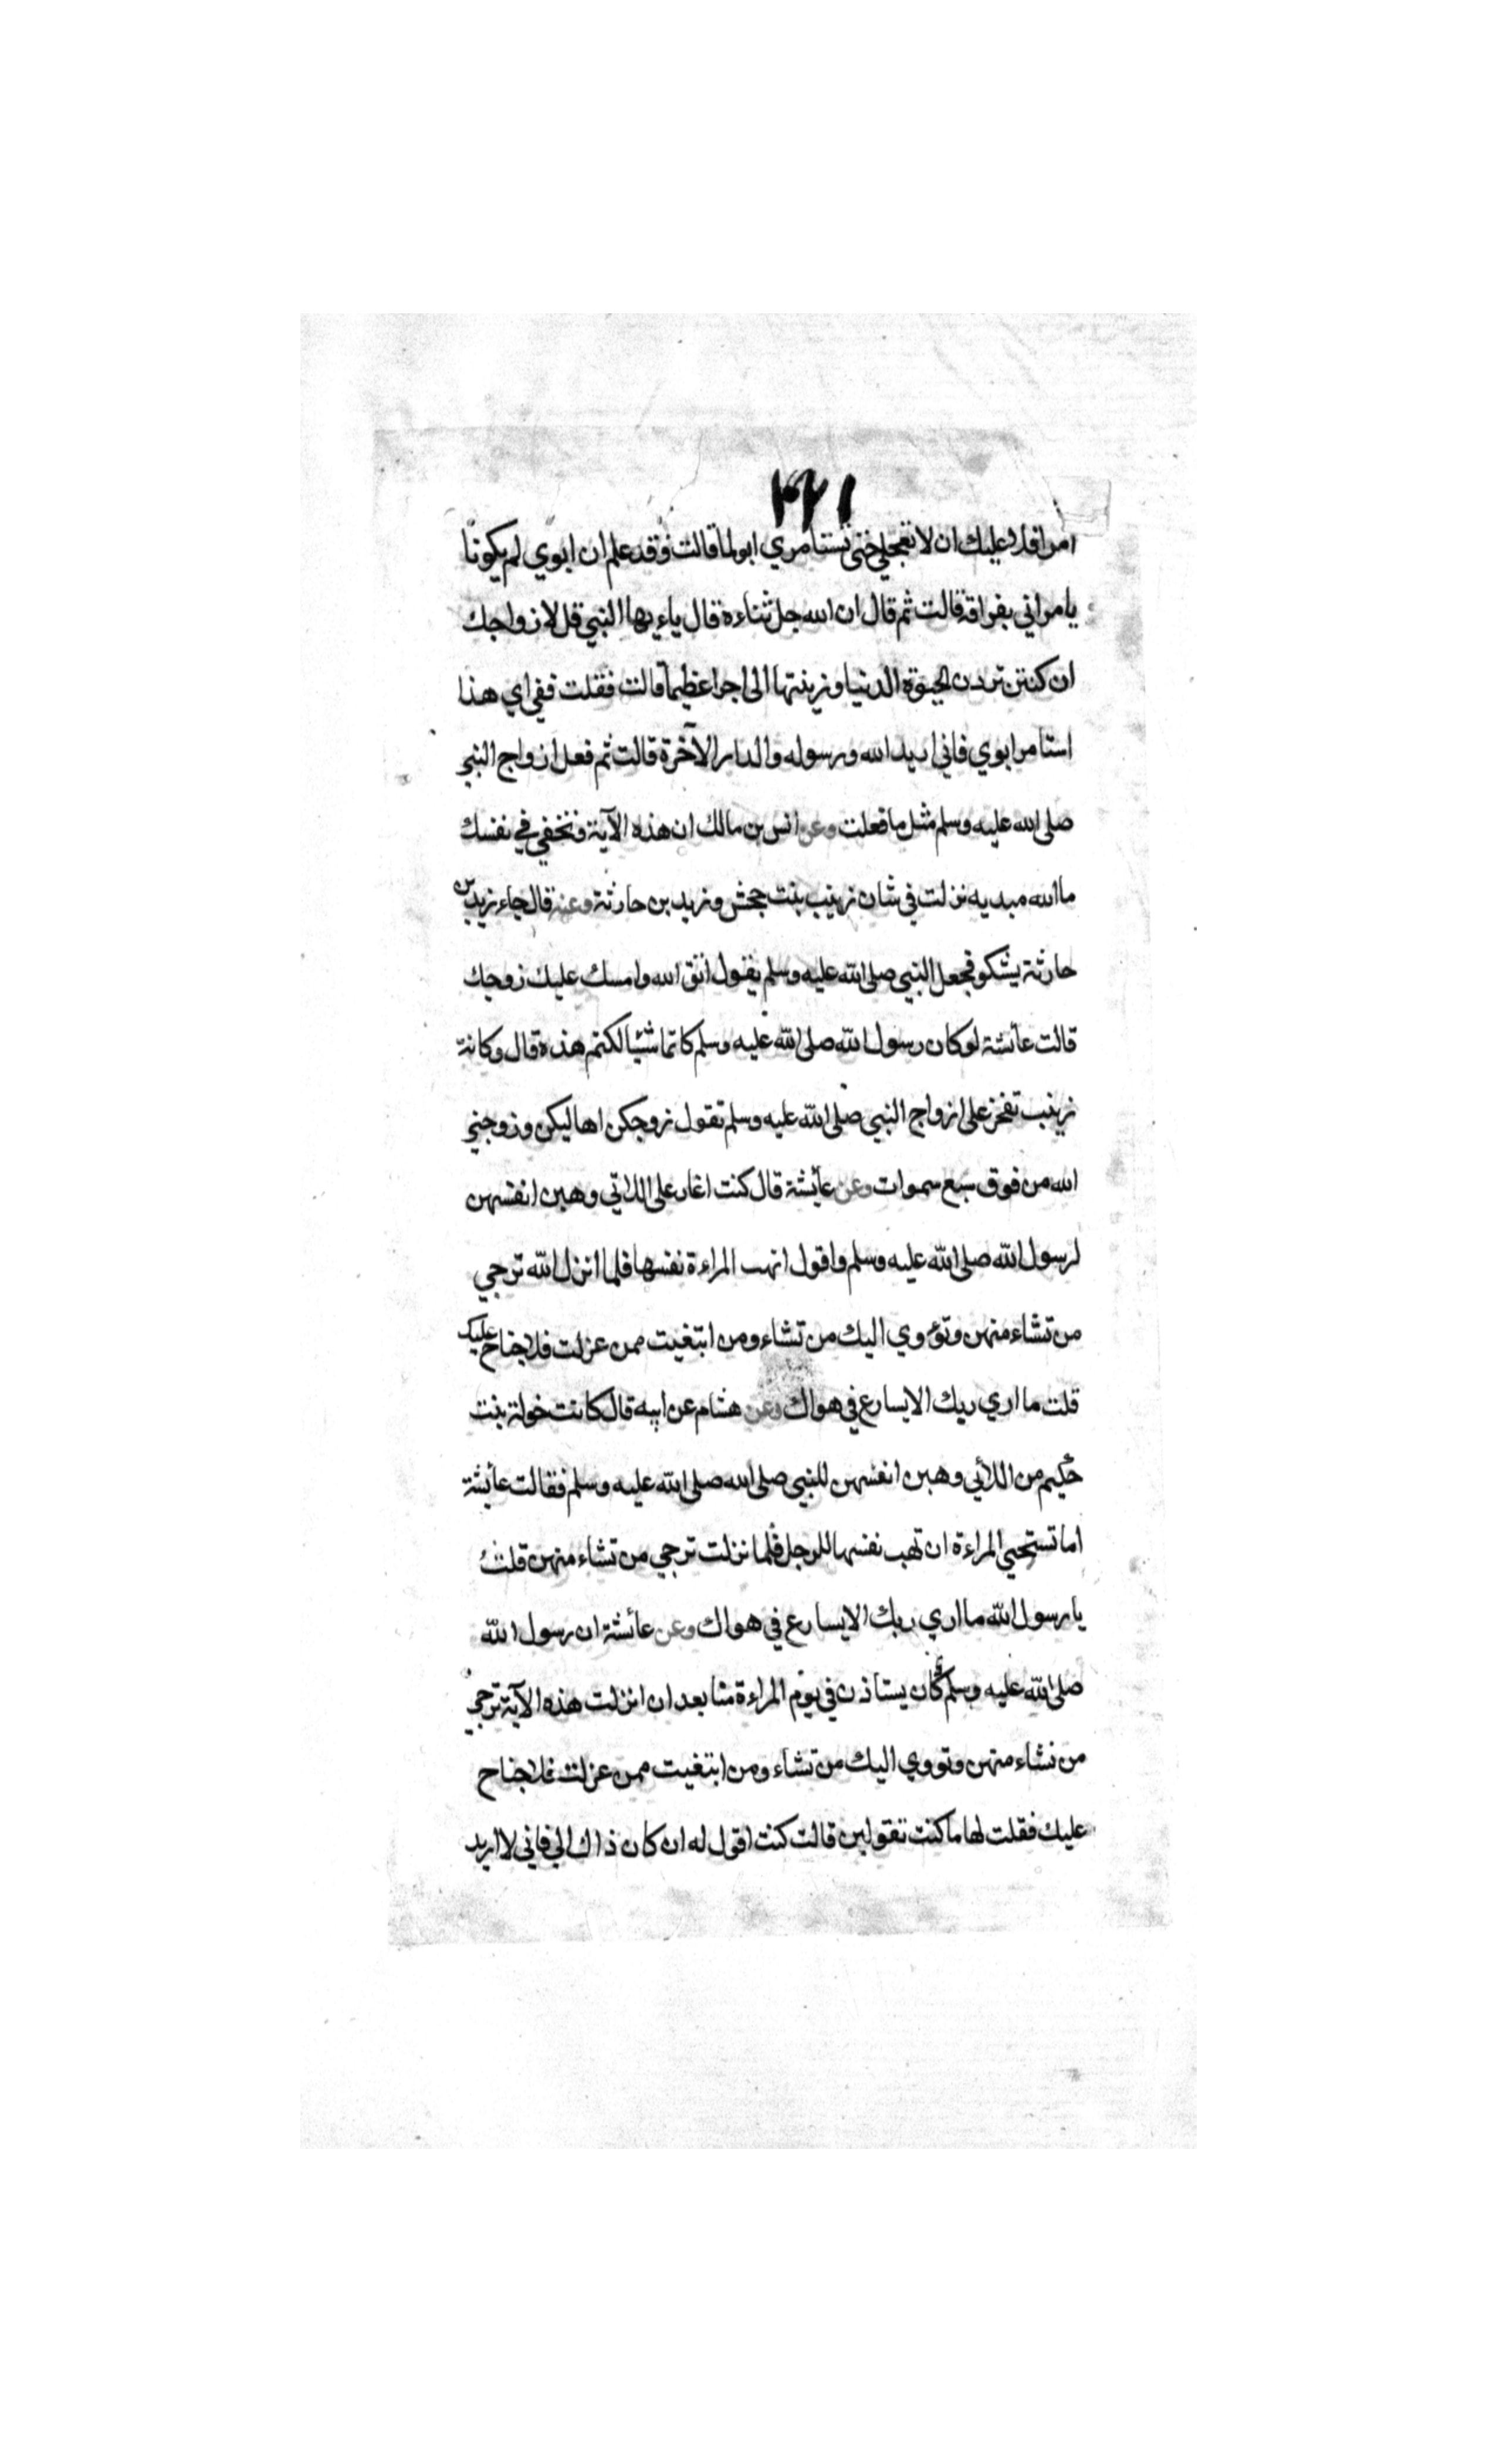 ٣٢١
امرا فلا عليك ان لا تعجلي حتى تستامري ابولما قالت وقد علم ان ابوي لم يكونا
يامراني بفراقه قالت ثم قال ان الله جل ثناءه قال ياءيها النبي قل لازواجك
ان كنتن تردن الحيوة الدنيا وزينتها الى اجرا عظيما قالت فقلت ففي اي هذا
استامر ابوي فاني اريد الله ورسوله والدار الآخرة قالت ثم فعل ازواج النبي
صلى الله عليه وسلم مثل ما فعلت وعن انس بن مالك ان هذه الآية وتخفي في نفسك
ما الله مبديه نزلت في شان زينب بنت جحش وزيد بن حارثة وعنه قال جاء زيد بن
حارثة يشكو فجعل النبي صلى الله عليه وسلم يقول اتق الله وامسك عليك زوجك
قالت عائشة لو كان رسول الله صلى الله عليه وسلم كاتما شيئا لكتم هذه قال وكانة
زينب تفخر على ازواج النبي صلى الله عليه وسلم تقول زوجكن اهاليكن وزوجني
الله من فوق سبع سموات وعن عائشة قال كنت اغار على اللاتي وهبن انفسهن
لرسول الله صلى الله عليه وسلم واقول اتهب المراءة نفسها فلما انزل الله ترجي
من تشاء منهن وتؤوي اليك من تشاء ومن ابتغيت ممن عزلت فلا جناح عليك
قلت ما اري ربك الا يسارع في هواك وعن هشام عن ابيه قال كانت خولة بنت
حكيم من اللائي وهبن انفسهن للنبي صلى الله صلى الله عليه وسلم فقالت عائشة
اما تستحيي المراءة ان تهب نفسها للرجل فلما نزلت ترجي من تشاء منهن قلت
يا رسول الله ما اري ربك الا يسارع في هواك وعن عائشة ان رسول الله
صلى الله عليه وسلم كان يستاذن في يوم المراءة منا بعد ان انزلت هذه الآية ترجي
من تشاء منهن وتووي اليك من تشاء ومن ابتغيت ممن عزلت فلا جناح
عليك فقلت لها ما كنت تقولين قالت كنت اقول له ان كان ذاك الي فاني لا اريد